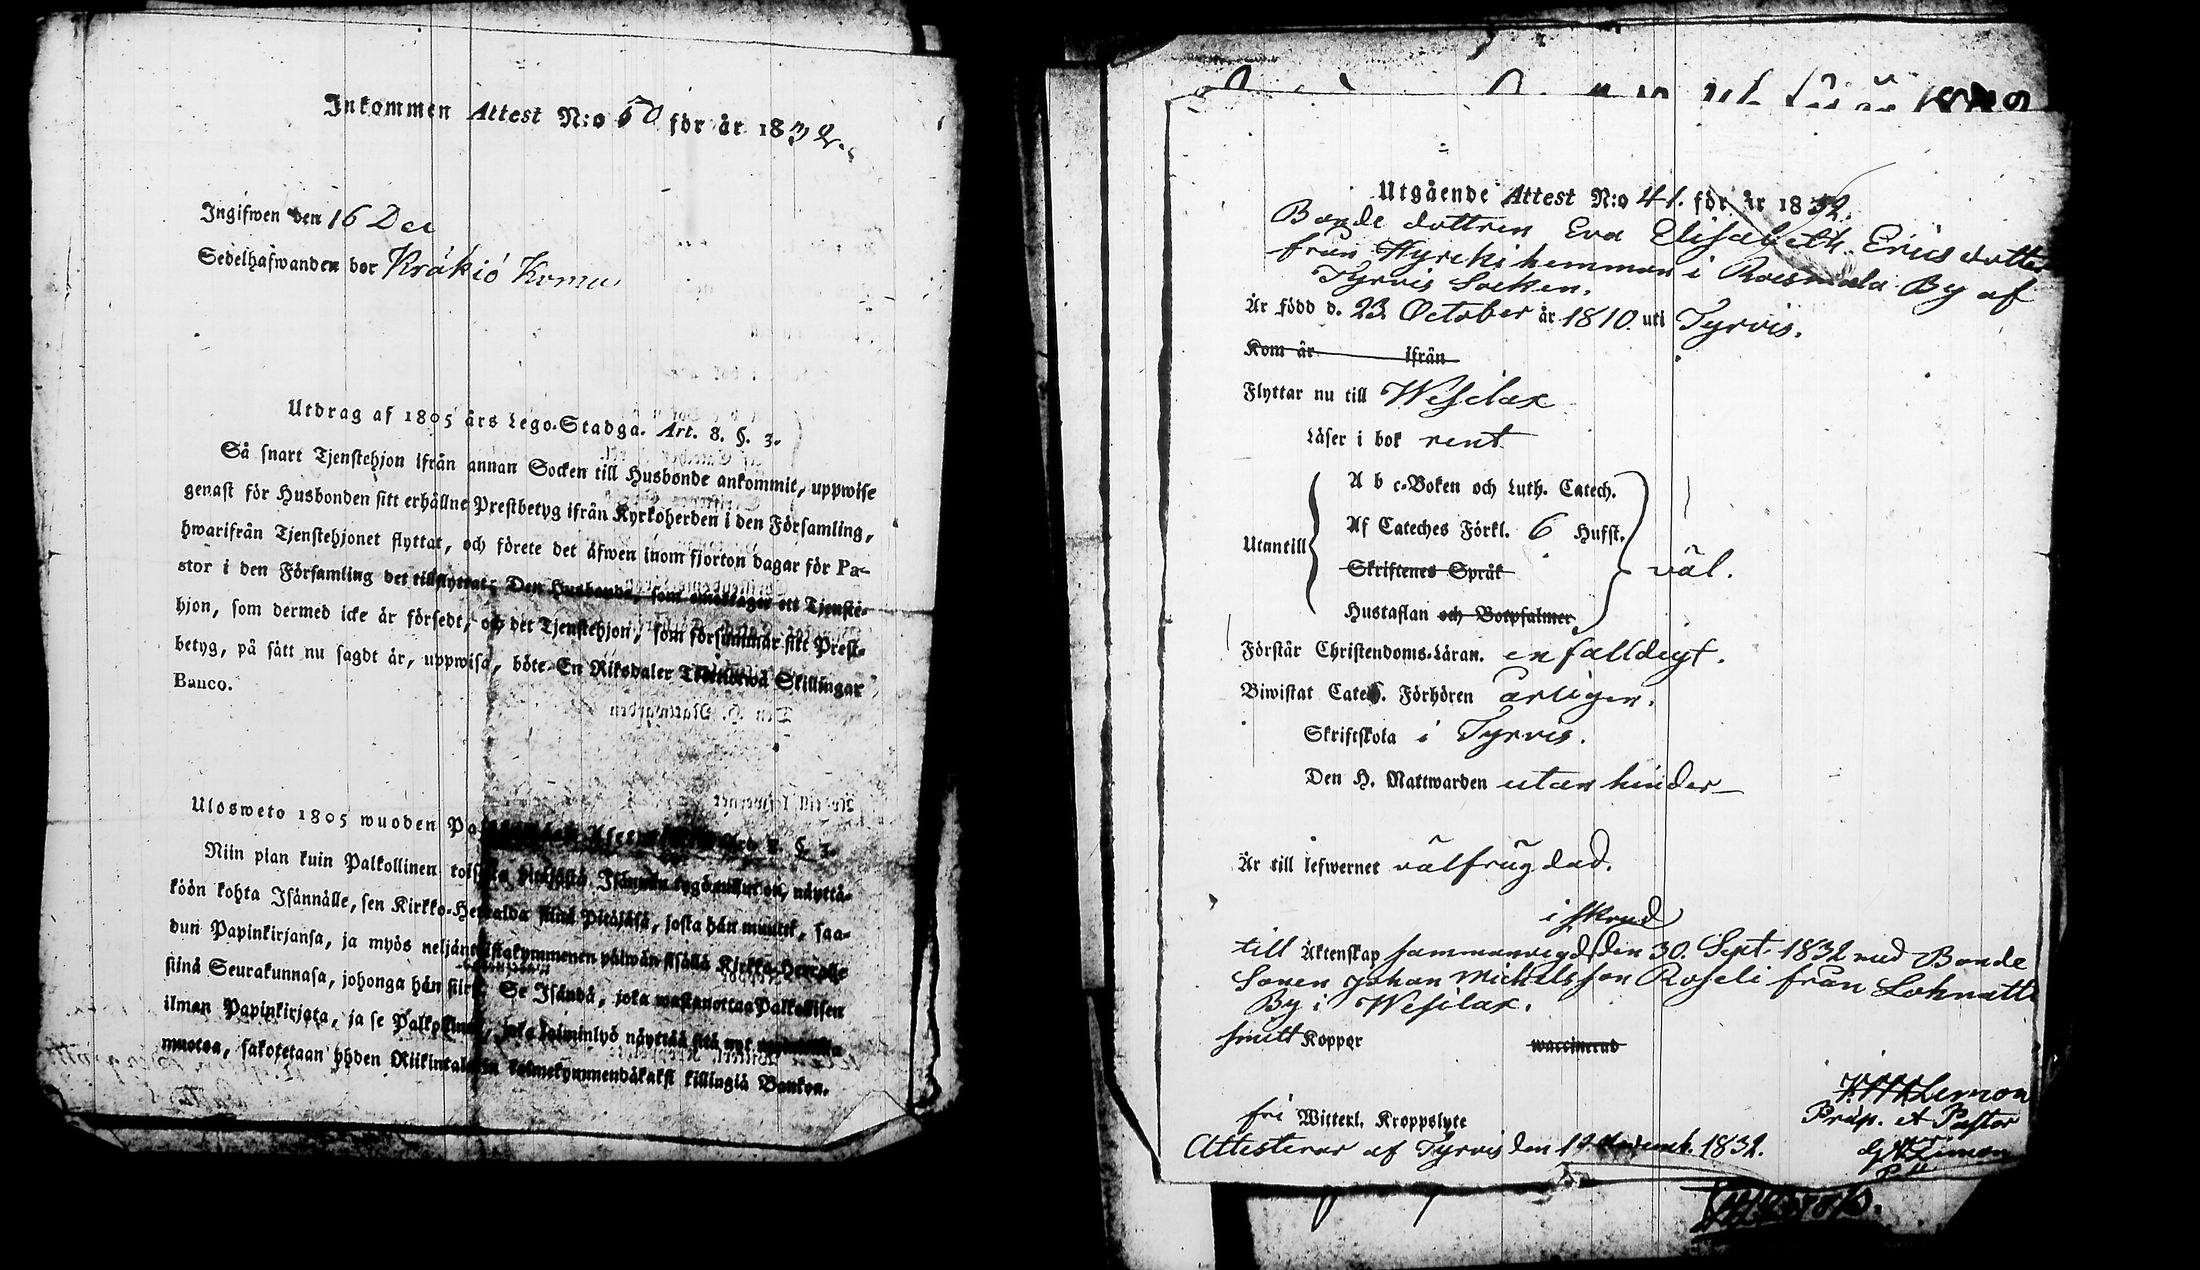 Inkommen Attest N:o 50 för år 1832.
Ingifwen den 16 Dec
Sedelhafwanden bor Kråkiö Krmu
Utdrag af 1805 års Lego-Stadga. Art. 8. §. 3.
Så snart Tjenstehjon ifrån annan Socken till Husbonde ankommit, uppwise
genast för Husbonden sitt erhållne Prestbetyg ifrån Kyrkoherden i den Församling,
hwarifrån Tjenstehjonet flyttat, och förete det äfwen inom fjorton dagar för Pa-
stor i den Församling det tillflyttat; Den Husbonde, som emottager ett Tjenste-
hjon, som dermed icke är försedt, och det Tjenstehjon, som försummar sitt Prest-
betyg, på sätt nu sagdt är, uppwisa, böte En Riksdaler Trettiotwå Skillingar
Banco.
Ulosweto 1805 wuoden §. 3.
Niin pian kuin Palkollinen toisesta pitäjästä Isännän tygö tullut on, näyttä-
köön kohta Isännälle, sen Kirkko-Herralda siinä pitäjäsä, josta hän muutti, saa-
dun Papinkirjansa, ja myös neljäntoistakymmenen päiwän sisällä Kirkko-Herralle
siinä Seurakunnasa, johonga hän siirsi. Se Isändä, joka wastanottaa Palkollisen
ilman Papinkirjata, ja se Palkollinen, joka laiminlyö näyttää sitä nyt
muotoa, sakotetaan yhden Riikintalarin kolmekymmendäkaksi killingiä Bankoa.
Utgående Attest N:o 41. för år 1832.
Bonde dottren Eva Elisabeth Ericsdotter
från Hyrcki hemman i Roismala By af
Tyrvis Socken.
Är född d. 23 October år 1810 uti Tyrvis.
Kom år ifrån
Flyttar nu till Wesilax
Läser i bok rent
A b c-Boken och Luth. Catech.
Af Cateches Förkl. 6 Hufst.
Utantill väl.
Skriftenes Språk
Hustaflan och Botpsalmer
Förstår Christendoms-Läran. enfalldigt.
Biwistat Catech. Förhören årligen.
Skriftskola i Tyrvis.
Den H. Nattwarden utan hinder
Är till lefwernet välfrägdad.
i skrud
till Äktenskap sammanvigd den 30. Sept. 1832 med Bonde
Sonen Johan Michelsson Roseli från
By i Wesilax.
smitt Koppor waccinerad
fri Witterl. Kroppslyte
Attesterar af Tyrvis den 1832.
Limon
Präp. et Pastor
Limon